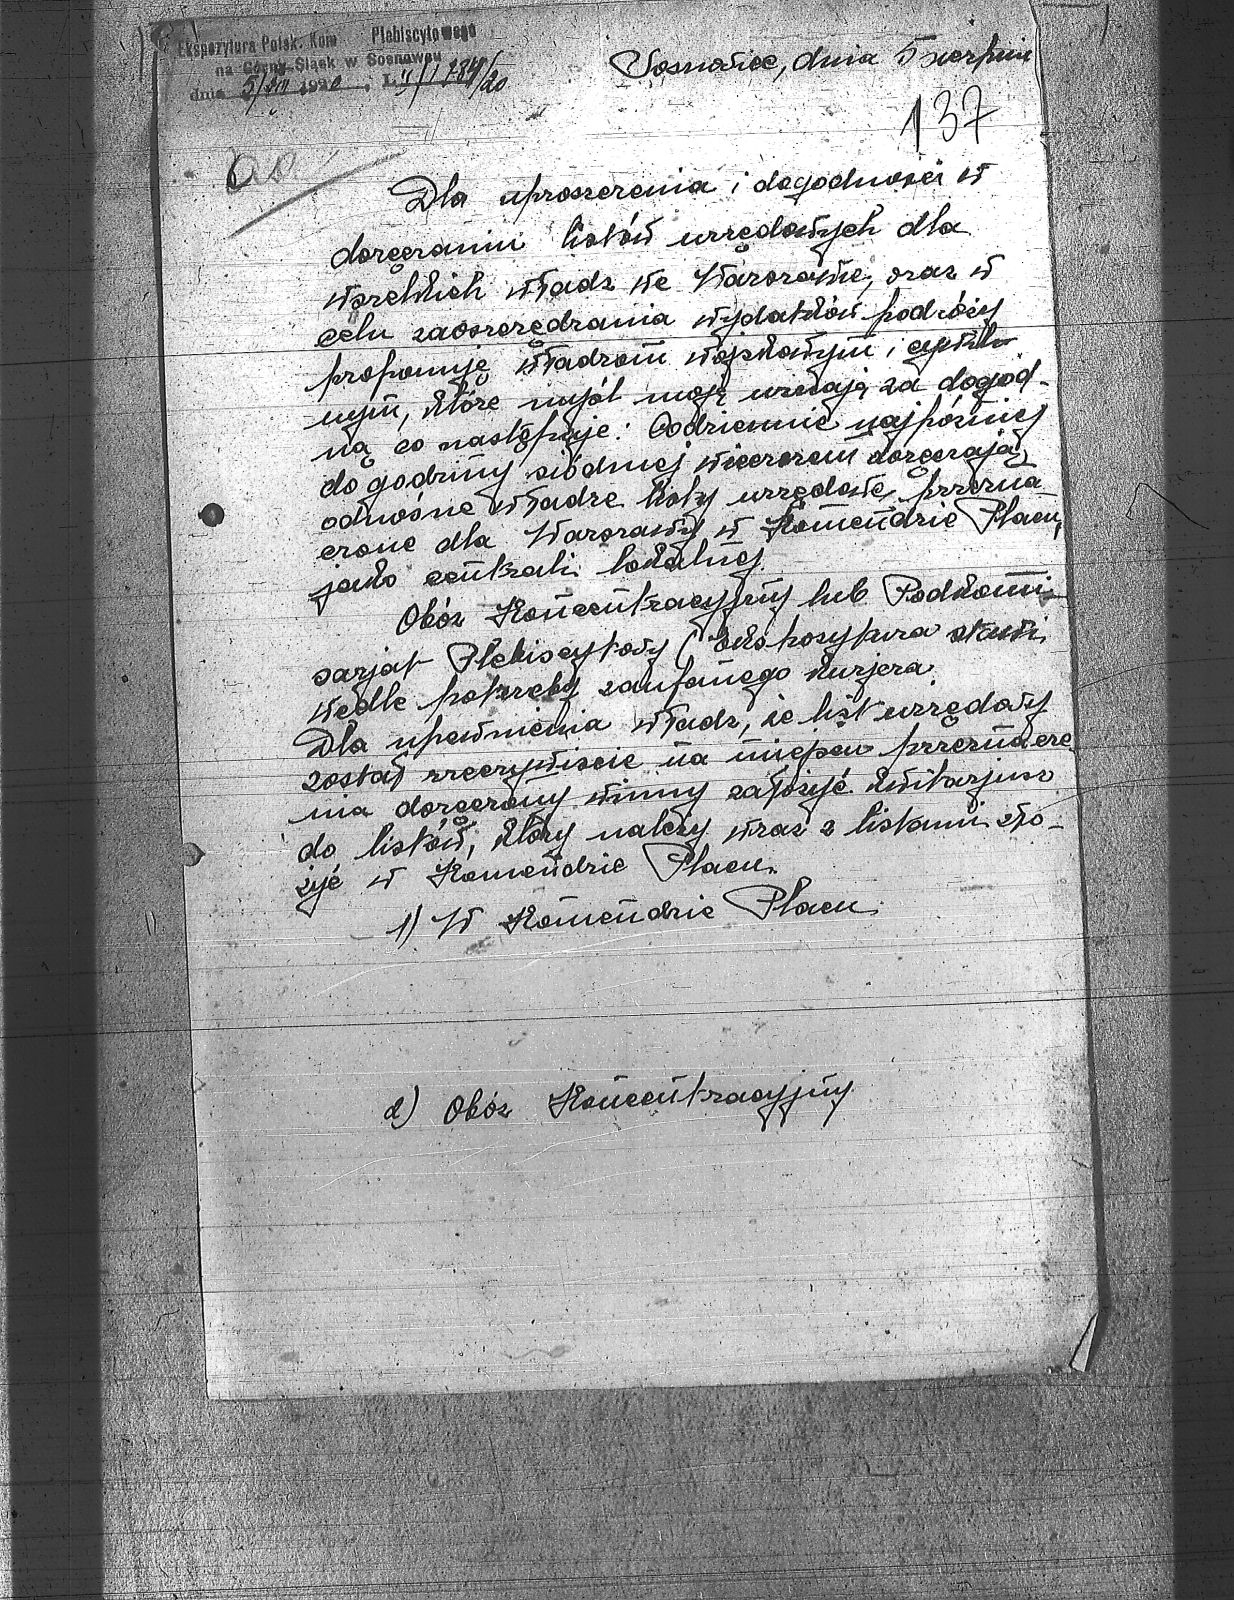 Ekspozytura Polsk. Kom Plebiscytowego
na Górny-Śląsk w Sosnowcu
dnia 5/VIII 1920, L. 784/20
Sosnowiec, dnia 5 sierpnia
137
Dla uproszczenia i dogodności w
doręczaniu listów urzędowych dla
wszelkich władz we Warszawie, oraz w
celu zaoszczędzania wydatków podróży
proponuję władzom wojskowym i cywil-
nym, które myśl moją uznają za dogod-
ną co następuje: Codziennie najpóźniej
do godziny siódmej wieczorem doręczają
odnośne władze listy urzędowe, przezna
czone dla Warszawy w Komendzie Placu,
jako centrali lokalnej.
Obóz Koncentracyjny lub Podkomi-
sarjat Plebiscytowy (Ekspozytura stawi
wedle potrzeby zaufanego kurjera.
Dla upewnienia władz, że list urzędowy
został rzeczywiście na miejscu przeznacze
nia doręczony winny założyć kwitarjusz
do listów, który należy wraz z listami zło-
żyć w Komendzie Placu.
1) W Komendzie Placu
2) Obóz Koncentracyjny